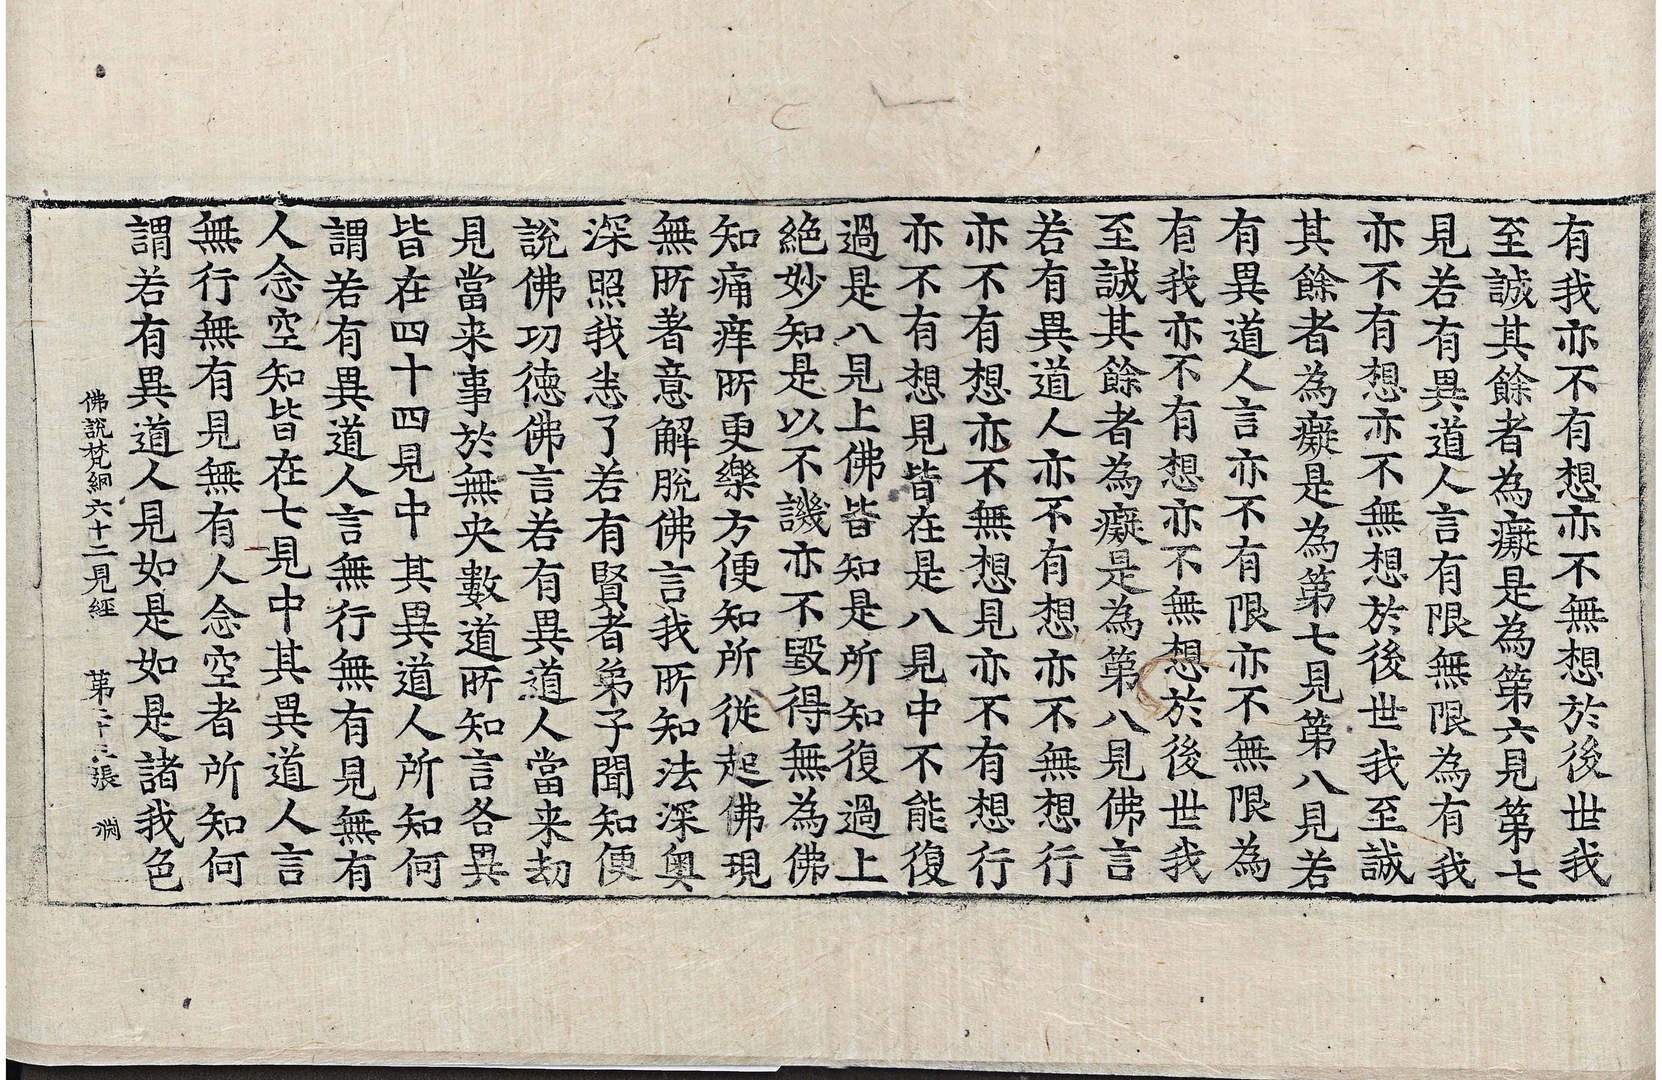 有我亦不有想亦不無想於後世我
至誠其餘者為癡是為第六見第七
見若有異道人言有限無限為有我
亦不有想亦不無想於後世我至誠
其餘者為癡是為第七見第八見若
有異道人言亦不有限亦不無限為
有我亦不有想亦不無想於後世我
至誠其餘者為癡是為第八見佛言
若有異道人亦不有想亦不無想行
亦不有想亦不無想見亦不有想行
亦不有想見皆在是八見中不能復
過是八見上佛皆知是所知復過上
絕妙知是以不譏亦不毀得無為佛
知痛痒所更樂方便知所從起佛現
無所著意解脫佛言我所知法深奧
深照我悉了若有賢者弟子聞知便
說佛功德佛言若有異道人當来劫
見當来事於無央數道所知言各異
皆在四十四見中其異道人所知何
謂若有異道人言無行無有見無有
人念空知皆在七見中其異道人言
無行無有見無有人念空者所知何
謂若有異道人見如是如是諸我色
佛說梵網六十二見經 第十三張 淵